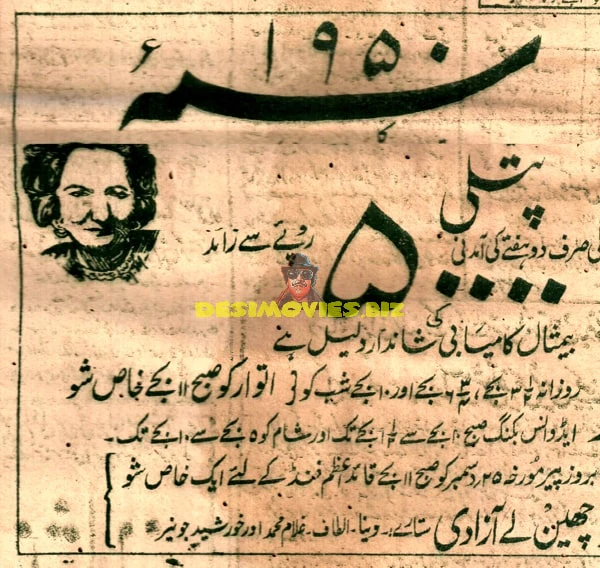 سنہ ۱۹۵۰ء
کا
پتلی
کی صرف دو ہفتے کی آمدنی ۵۰۰۰۰ روپے سے زائد
بیمثال کامیابی کی شاندار دلیل ہے
DESIMOVIES.BIZ
روزانہ ۳½ بجے، ۶¾ بجے اور ۱۰ بجے شب کو [ اتوار کو صبح ۱۱ بجے خاص شو
ایڈوانس بکنگ صبح ۱۰ بجے سے بجے تک اور شام کو ۵ بجے سے ۱۰ بجے تک۔
بروز پیر مورخہ ۲۵ دسمبر کو صبح ۱۱ بجے قائد اعظم فنڈ کے لئے ایک خاص شو
چھین لے آزادی ستارے:۔ وینا۔ الطاف۔ غلام محمد اور خورشید جونیر